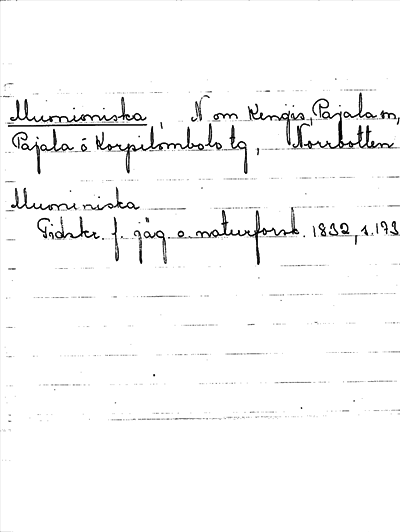 Muonioniska, N om Kengis, Pajala sn,
Pajala ö Korpilombolo tg, Norrbotten
Muoniniska
Tidskr. f. jäg. o. naturforsk. 1832, s. 173